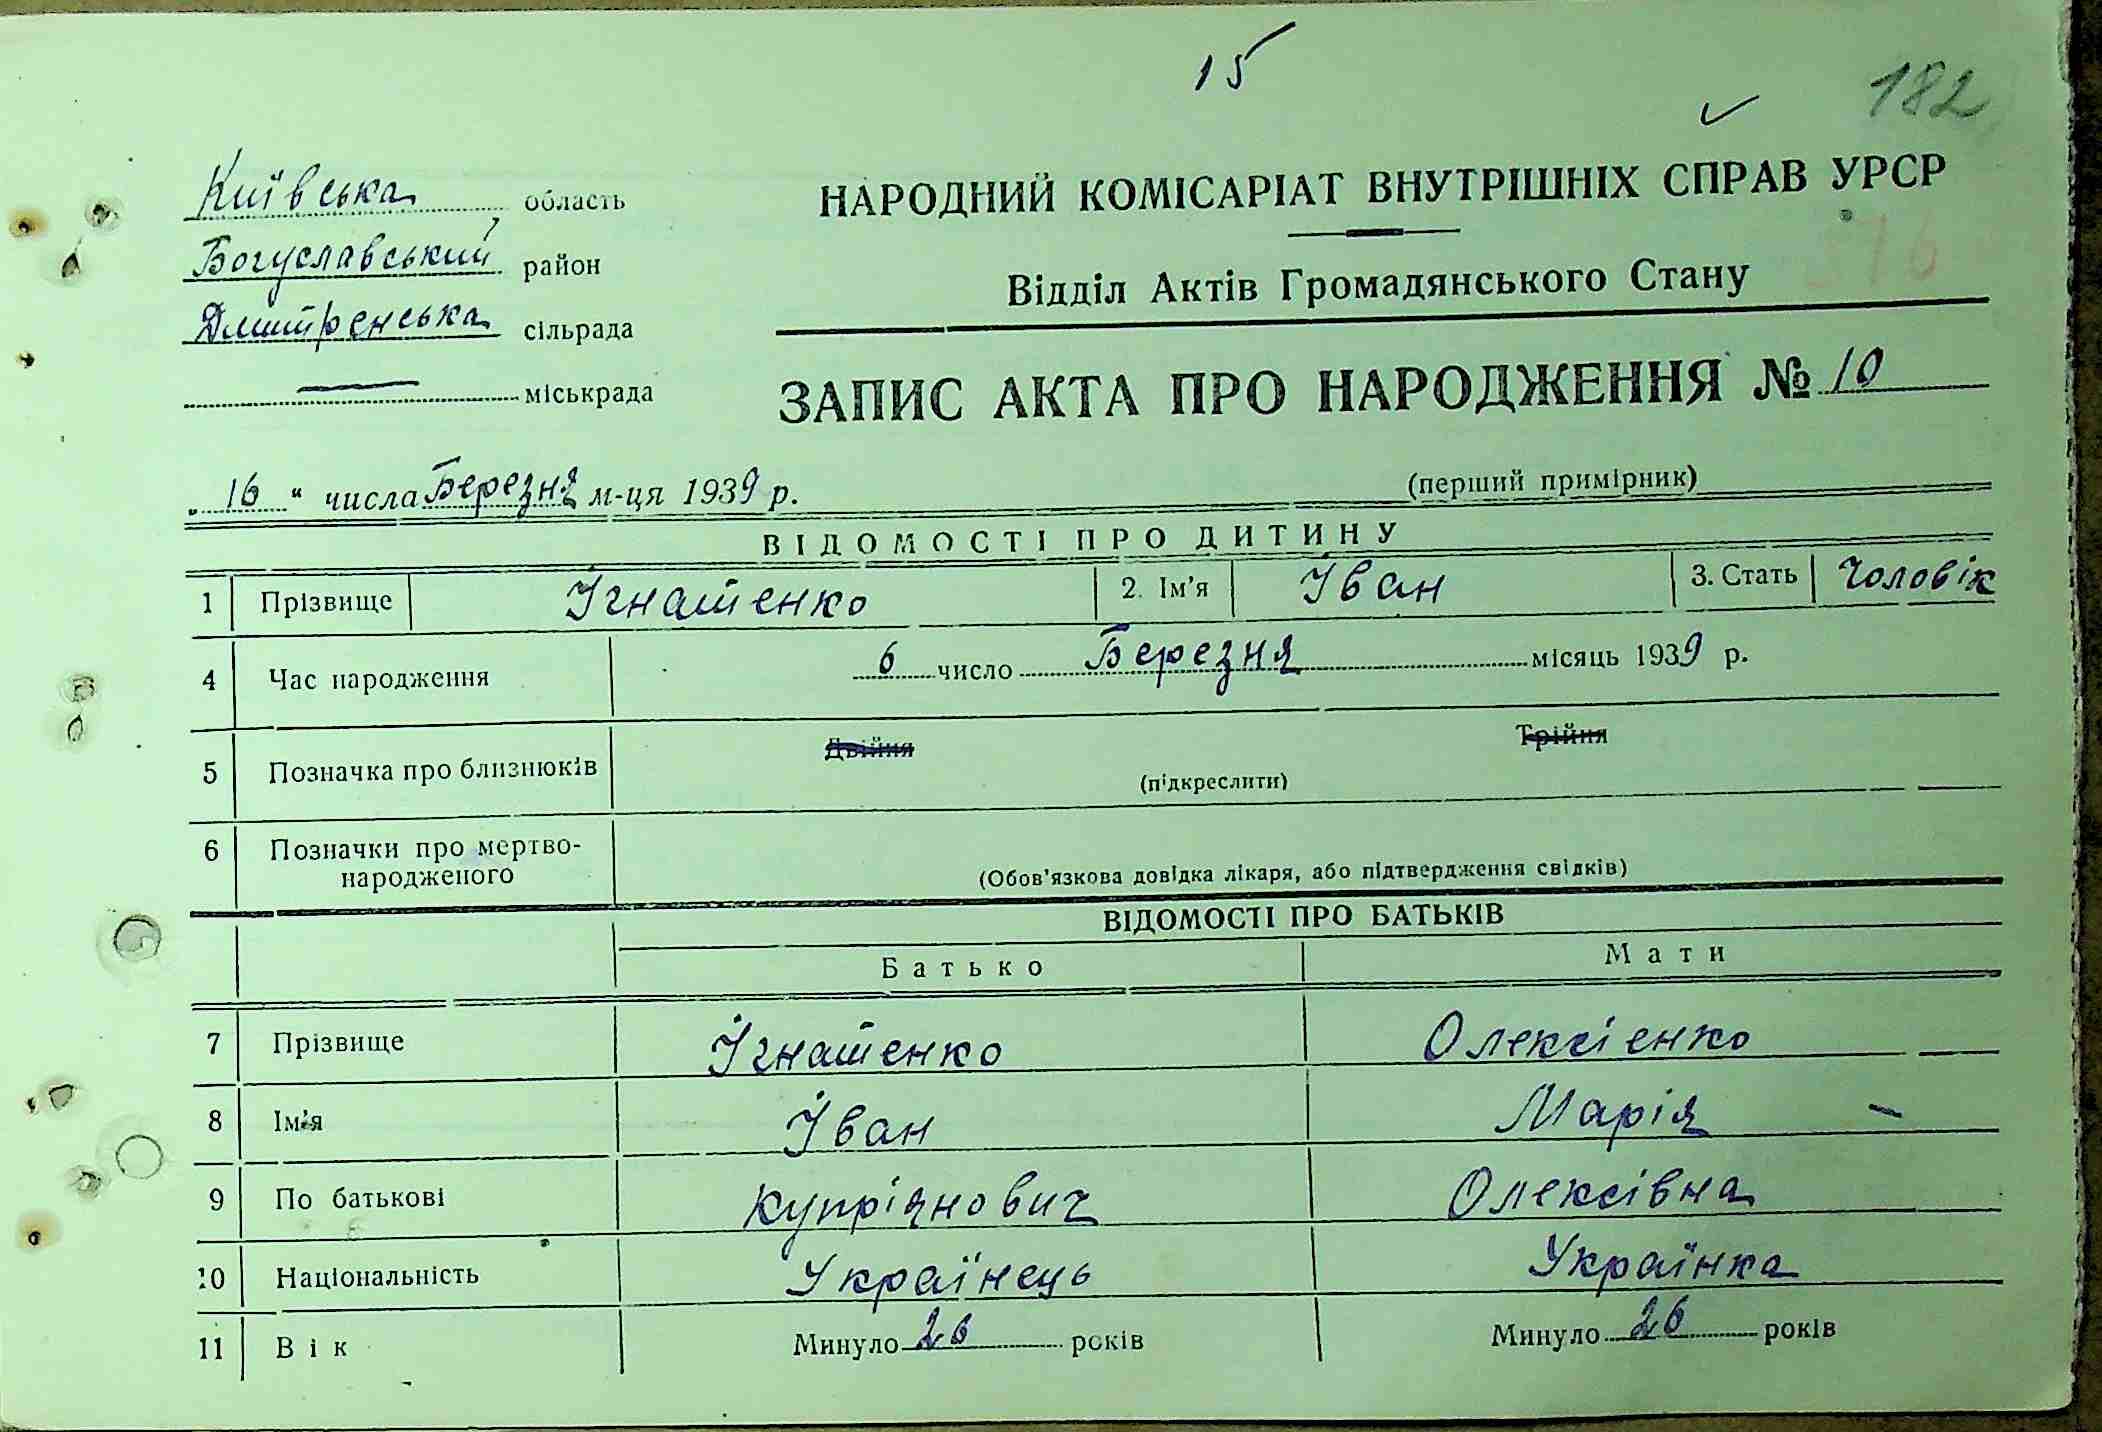 15
182
Київська область
Богуславський район
Дмитренська сільрада
міськрада
НАРОДНИЙ КОМІСАРІАТ ВНУТРІШНІХ СПРАВ УРСР
Відділ Актів Громадянського Стану
ЗАПИС АКТА ПРО НАРОДЖЕННЯ № 10
(перший примірник)
„16“ числа Березня м-ця 1939 р.
ВІДОМОСТІ ПРО ДИТИНУ
1 Прізвище Ігнатенко 2. Ім'я Іван 3. Стать Чоловік
4 Час народження 6 число Березня місяць 1939 р.
5 Позначка про близнюків Двійня Трійня
(підкреслити)
6 Позначки про мертво-
народженого (Обов'язкова довідка лікаря, або підтвердження свідків)
ВІДОМОСТІ ПРО БАТЬКІВ
Батько Мати
7 Прізвище Ігнатенко Олексієнко
8 Ім'я Іван Марія
9 По батькові Купріянович Олексівна
10 Національність Українець Українка
11 Вік Минуло 26 років Минуло 26 років